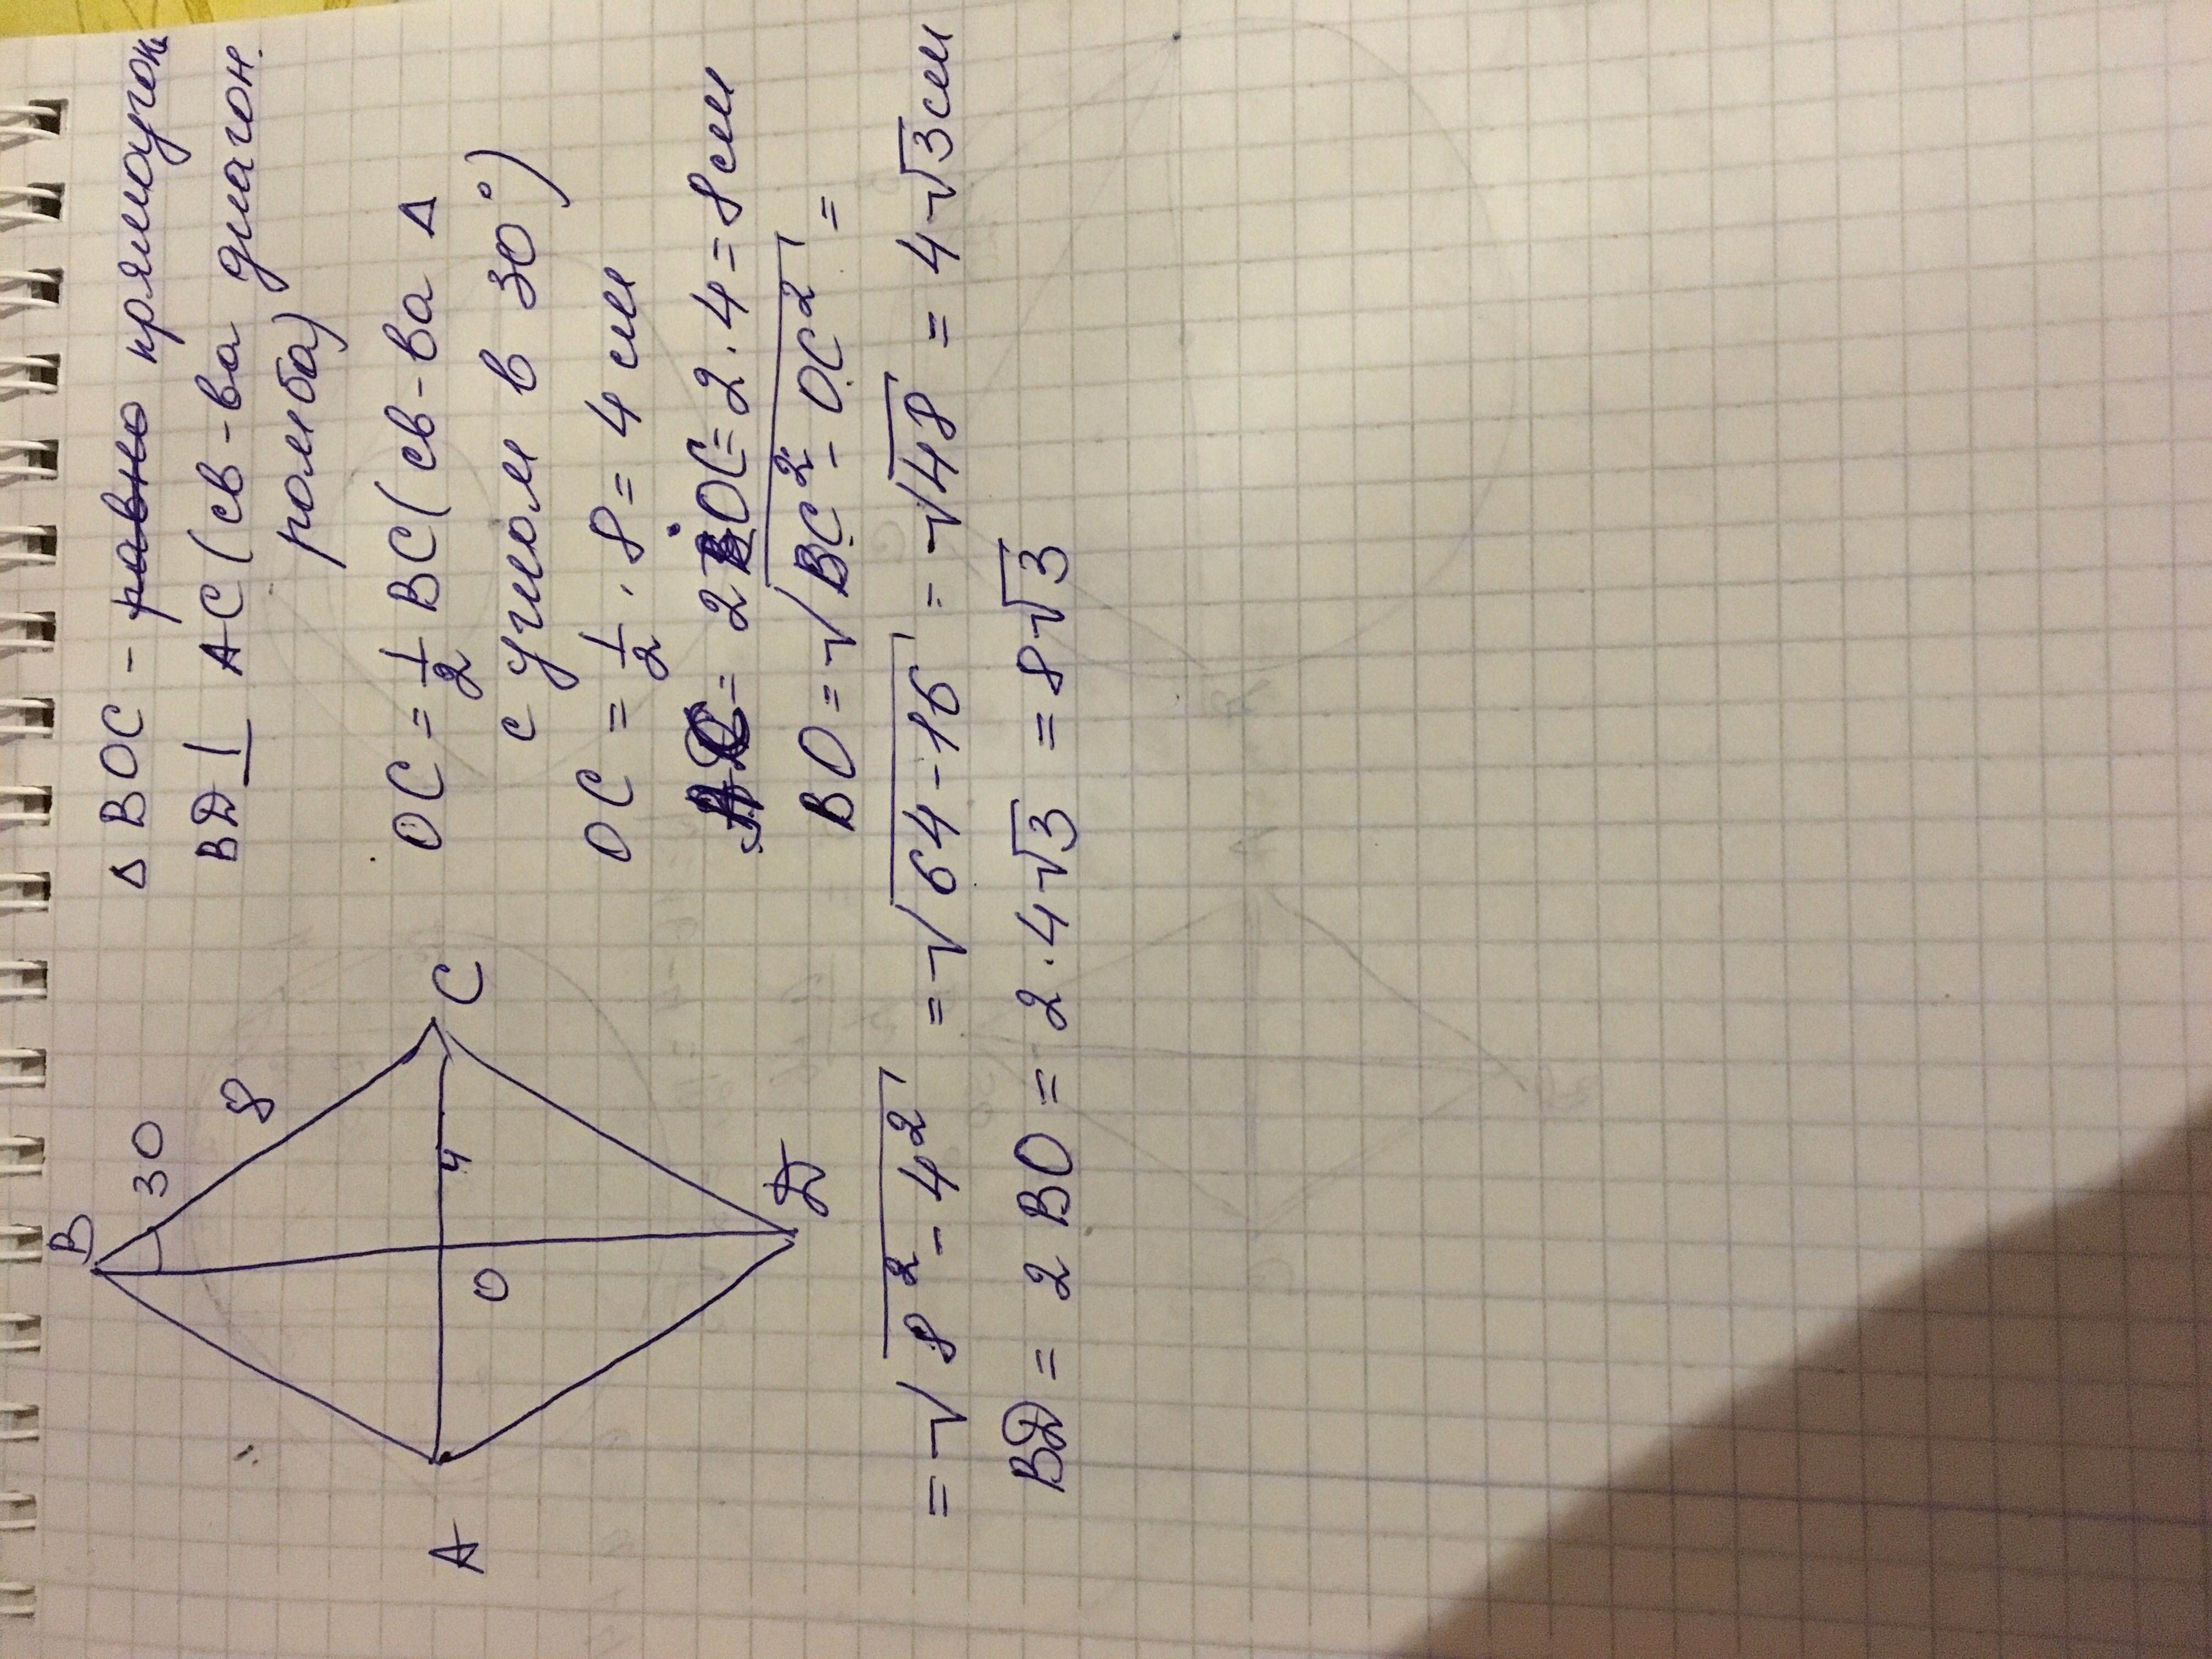 B
30
8
A
O
4
C
D
Δ BOC - равно прямоугол
BD ⊥ AC (св-ва диагон.
ромба)
OC = 1/2 BC (св-ва Δ
с углом в 30°)
OC = 1/2 · 8 = 4 см
AC = 2 OC = 2 · 4 = 8 см
BO = √(BC² - OC²) =
= √(8² - 4²) = √(64 - 16) = √48 = 4√3 см
BD = 2 BO = 2 · 4√3 = 8√3